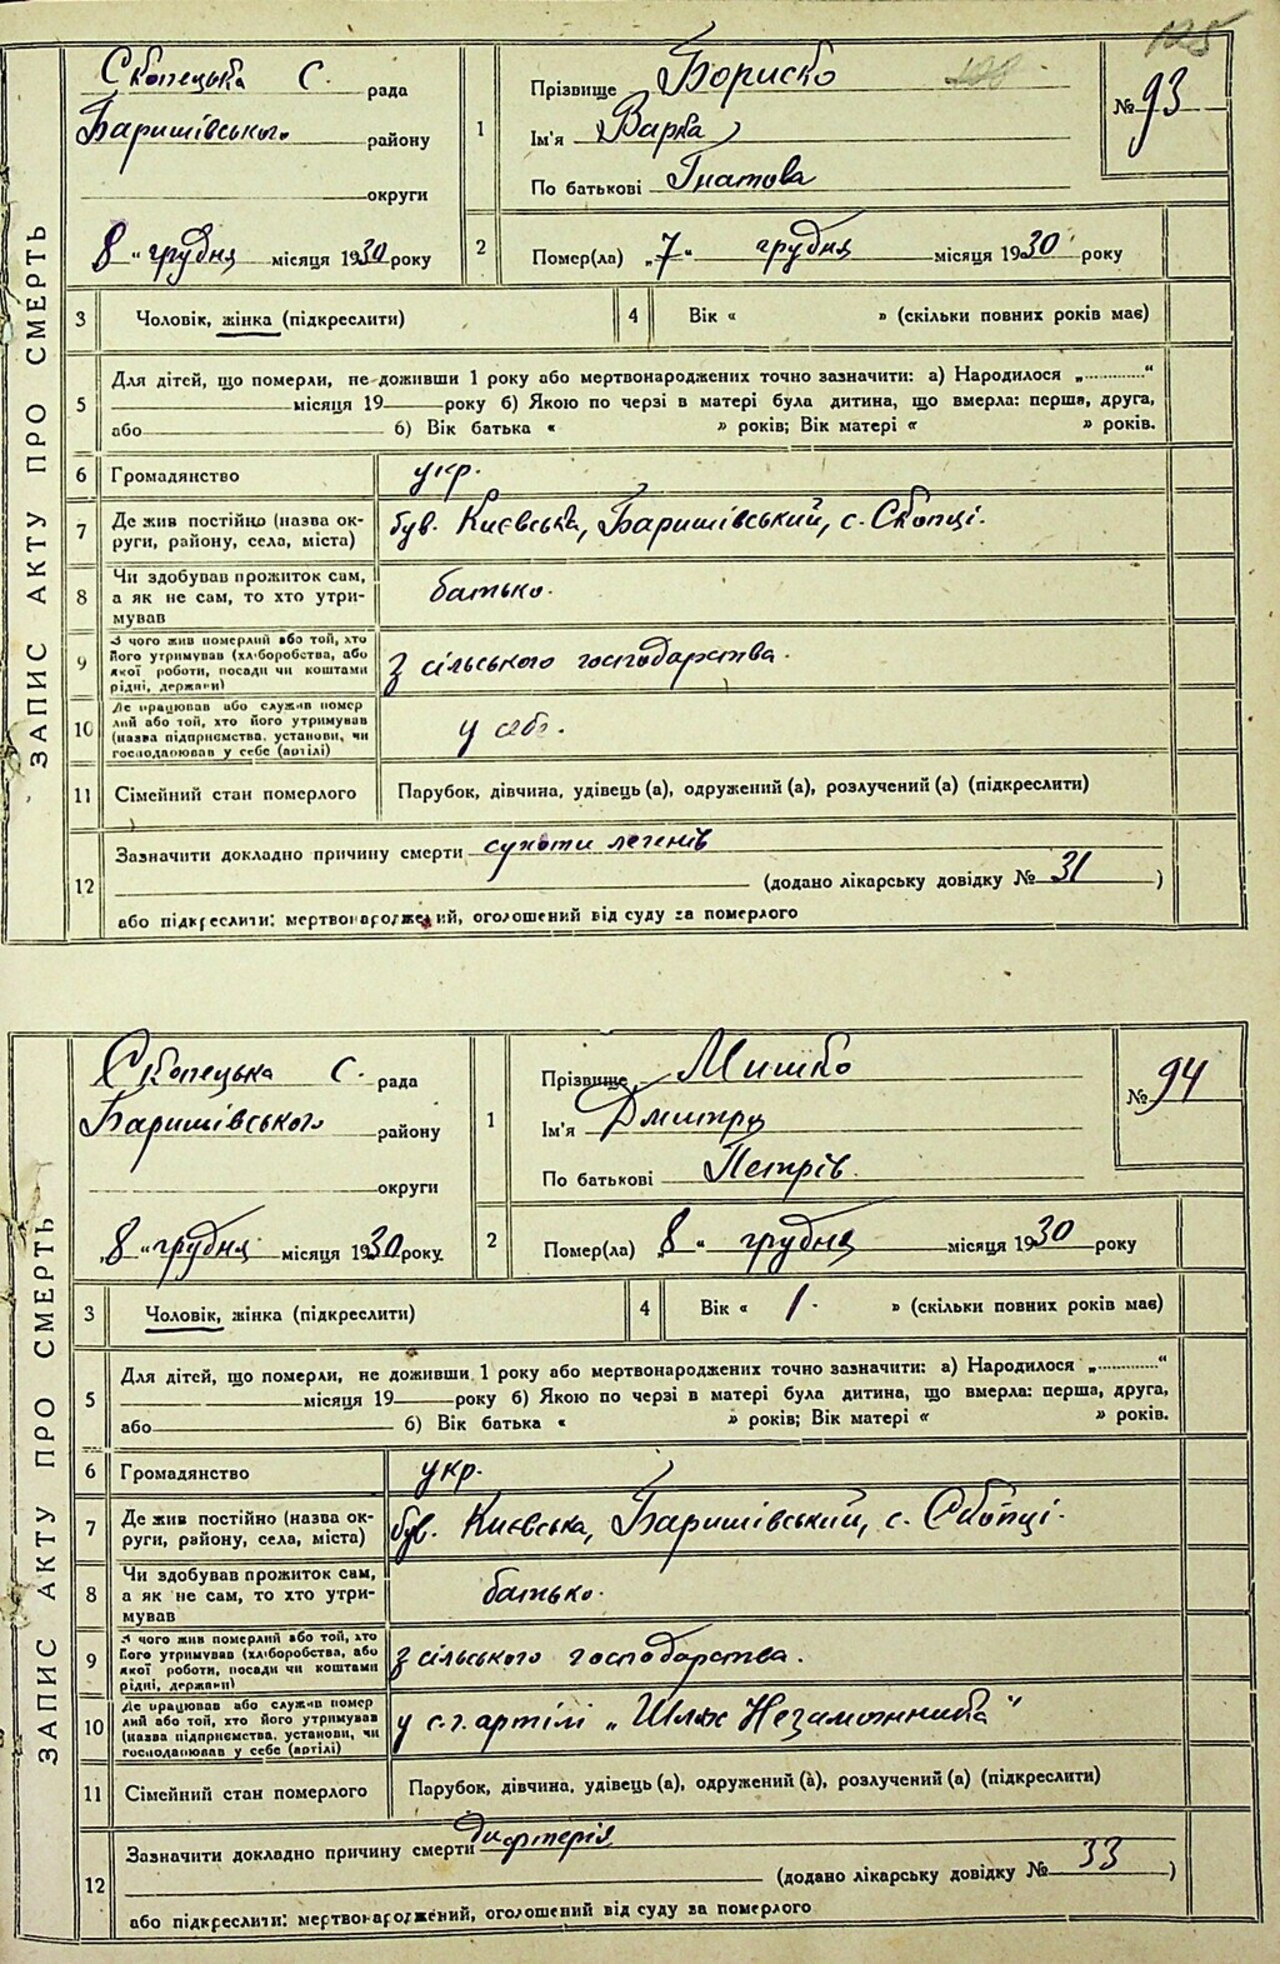 125
ЗАПИС АКТУ ПРО СМЕРТЬ
Скопецька С. рада
Баришівського району
округи
8 " грудня місяця 1930 року
1
Прізвище Бориско
Ім'я Варка
По батькові Гнатова
№ 93
2
Помер(ла) „7" грудня місяця 1930 року
3 Чоловік, жінка (підкреслити)
4 Вік « » (скільки повних років має)
5 Для дітей, що померли, не доживши 1 року або мертвонароджених точно зазначити: а) Народилося „ “
місяця 19 року б) Якою по черзі в матері була дитина, що вмерла: перша, друга,
або б) Вік батька « » років; Вік матері « » років.
6 Громадянство укр.
7 Де жив постійно (назва ок-
руги, району, села, міста) був. Києвська, Баришівський, с. Скопці.
8 Чи здобував прожиток сам,
а як не сам, то хто утри-
мував батько.
9 З чого жив померлий або той, хто
його утримував (хліборобства, або
якої роботи, посади чи коштами
рідні, держави) з сільського господарства.
10 Де працював або служив помер
лий або той, хто його утримував
(назва підприємства, установи, чи
господарював у себе (артілі) у себе.
11 Сімейний стан померлого Парубок, дівчина, удівець (а), одружений (а), розлучений (а) (підкреслити)
12 Зазначити докладно причину смерти сухоти легенів
(додано лікарську довідку № 31 )
або підкреслити: мертвонароджений, оголошений від суду за померлого
ЗАПИС АКТУ ПРО СМЕРТЬ
Скопецька С. рада
Баришівського району
округи
„8 " грудня місяця 1930 року
1
Прізвище Мишко
Ім'я Дмитро
По батькові Петрів.
№ 94
2
Помер(ла) „8 " грудня місяця 1930 року
3 Чоловік, жінка (підкреслити)
4 Вік « 1. » (скільки повних років має)
5 Для дітей, що померли, не доживши 1 року або мертвонароджених точно зазначити: а) Народилося „ “
місяця 19 року б) Якою по черзі в матері була дитина, що вмерла: перша, друга,
або б) Вік батька « » років; Вік матері « » років.
6 Громадянство укр.
7 Де жив постійно (назва ок-
руги, району, села, міста) був. Києвська, Баришівський, с. Скопці.
8 Чи здобував прожиток сам,
а як не сам, то хто утри-
мував батько.
9 З чого жив померлий або той, хто
його утримував (хліборобства, або
якої роботи, посади чи коштами
рідні, держави) з сільського господарства.
10 Де працював або служив помер
лий або той, хто його утримував
(назва підприємства, установи, чи
господарював у себе (артілі) у с.г. артілі „Шлях Незаможника"
11 Сімейний стан померлого Парубок, дівчина, удівець (а), одружений (а), розлучений (а) (підкреслити)
12 Зазначити докладно причину смерти дифтерія
(додано лікарську довідку № 33 )
або підкреслити: мертвонароджений, оголошений від суду за померлого